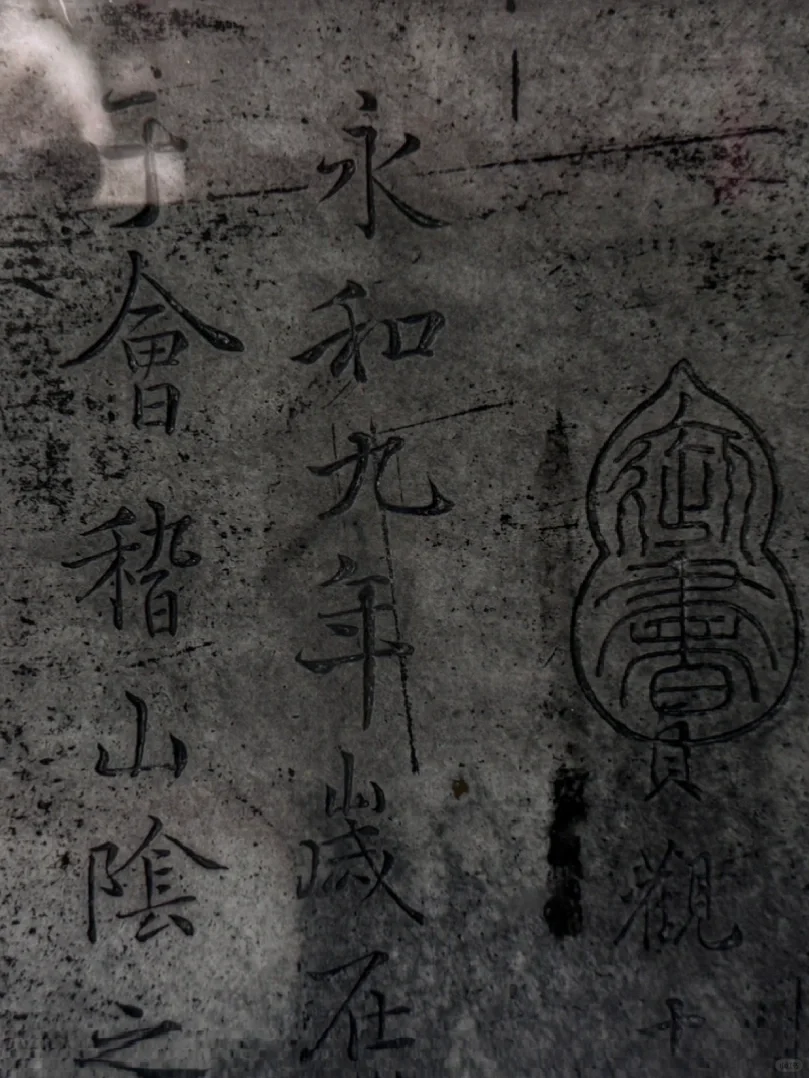 御書
貞觀十
永和九年歲在
于會稽山陰之